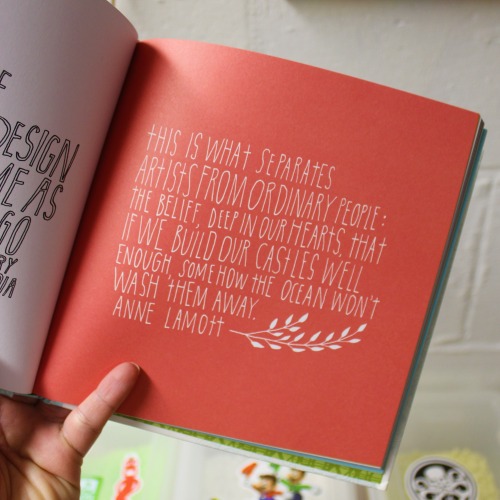 DESIGN
ME AS
GO
THIS IS WHAT SEPARATES
ARTISTS FROM ORDINARY PEOPLE:
THE BELIEF, DEEP IN OUR HEARTS, THAT
IF WE BUILD OUR CASTLES WELL
ENOUGH, SOMEHOW THE OCEAN WON'T
WASH THEM AWAY.
ANNE LAMOTT